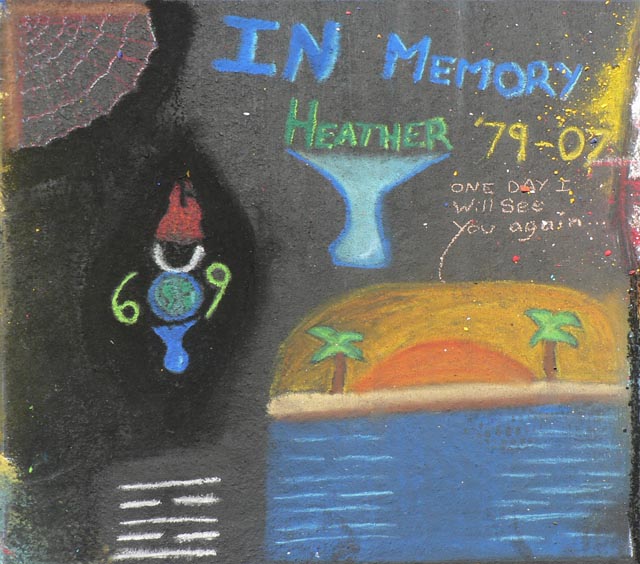 IN MEMORY
HEATHER '79-07
ONE DAY I
Will See
You again
6 9